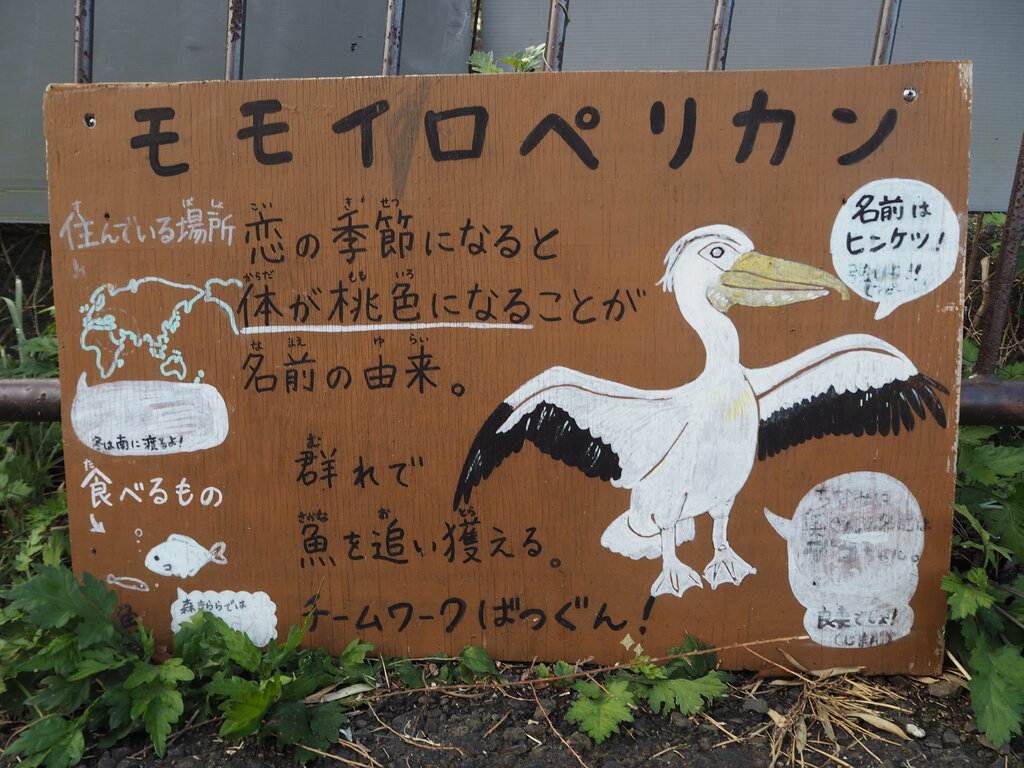 モモイロペリカン
住んでいる場所
恋の季節になると
体が桃色になることが
名前の由来。
名前は
ヒンケツ!
冬は南に渡るよ!
食べるもの
群れで
魚を追い獲える。
チームワークばつぐん!
森きららでは
ちなみに
自慢